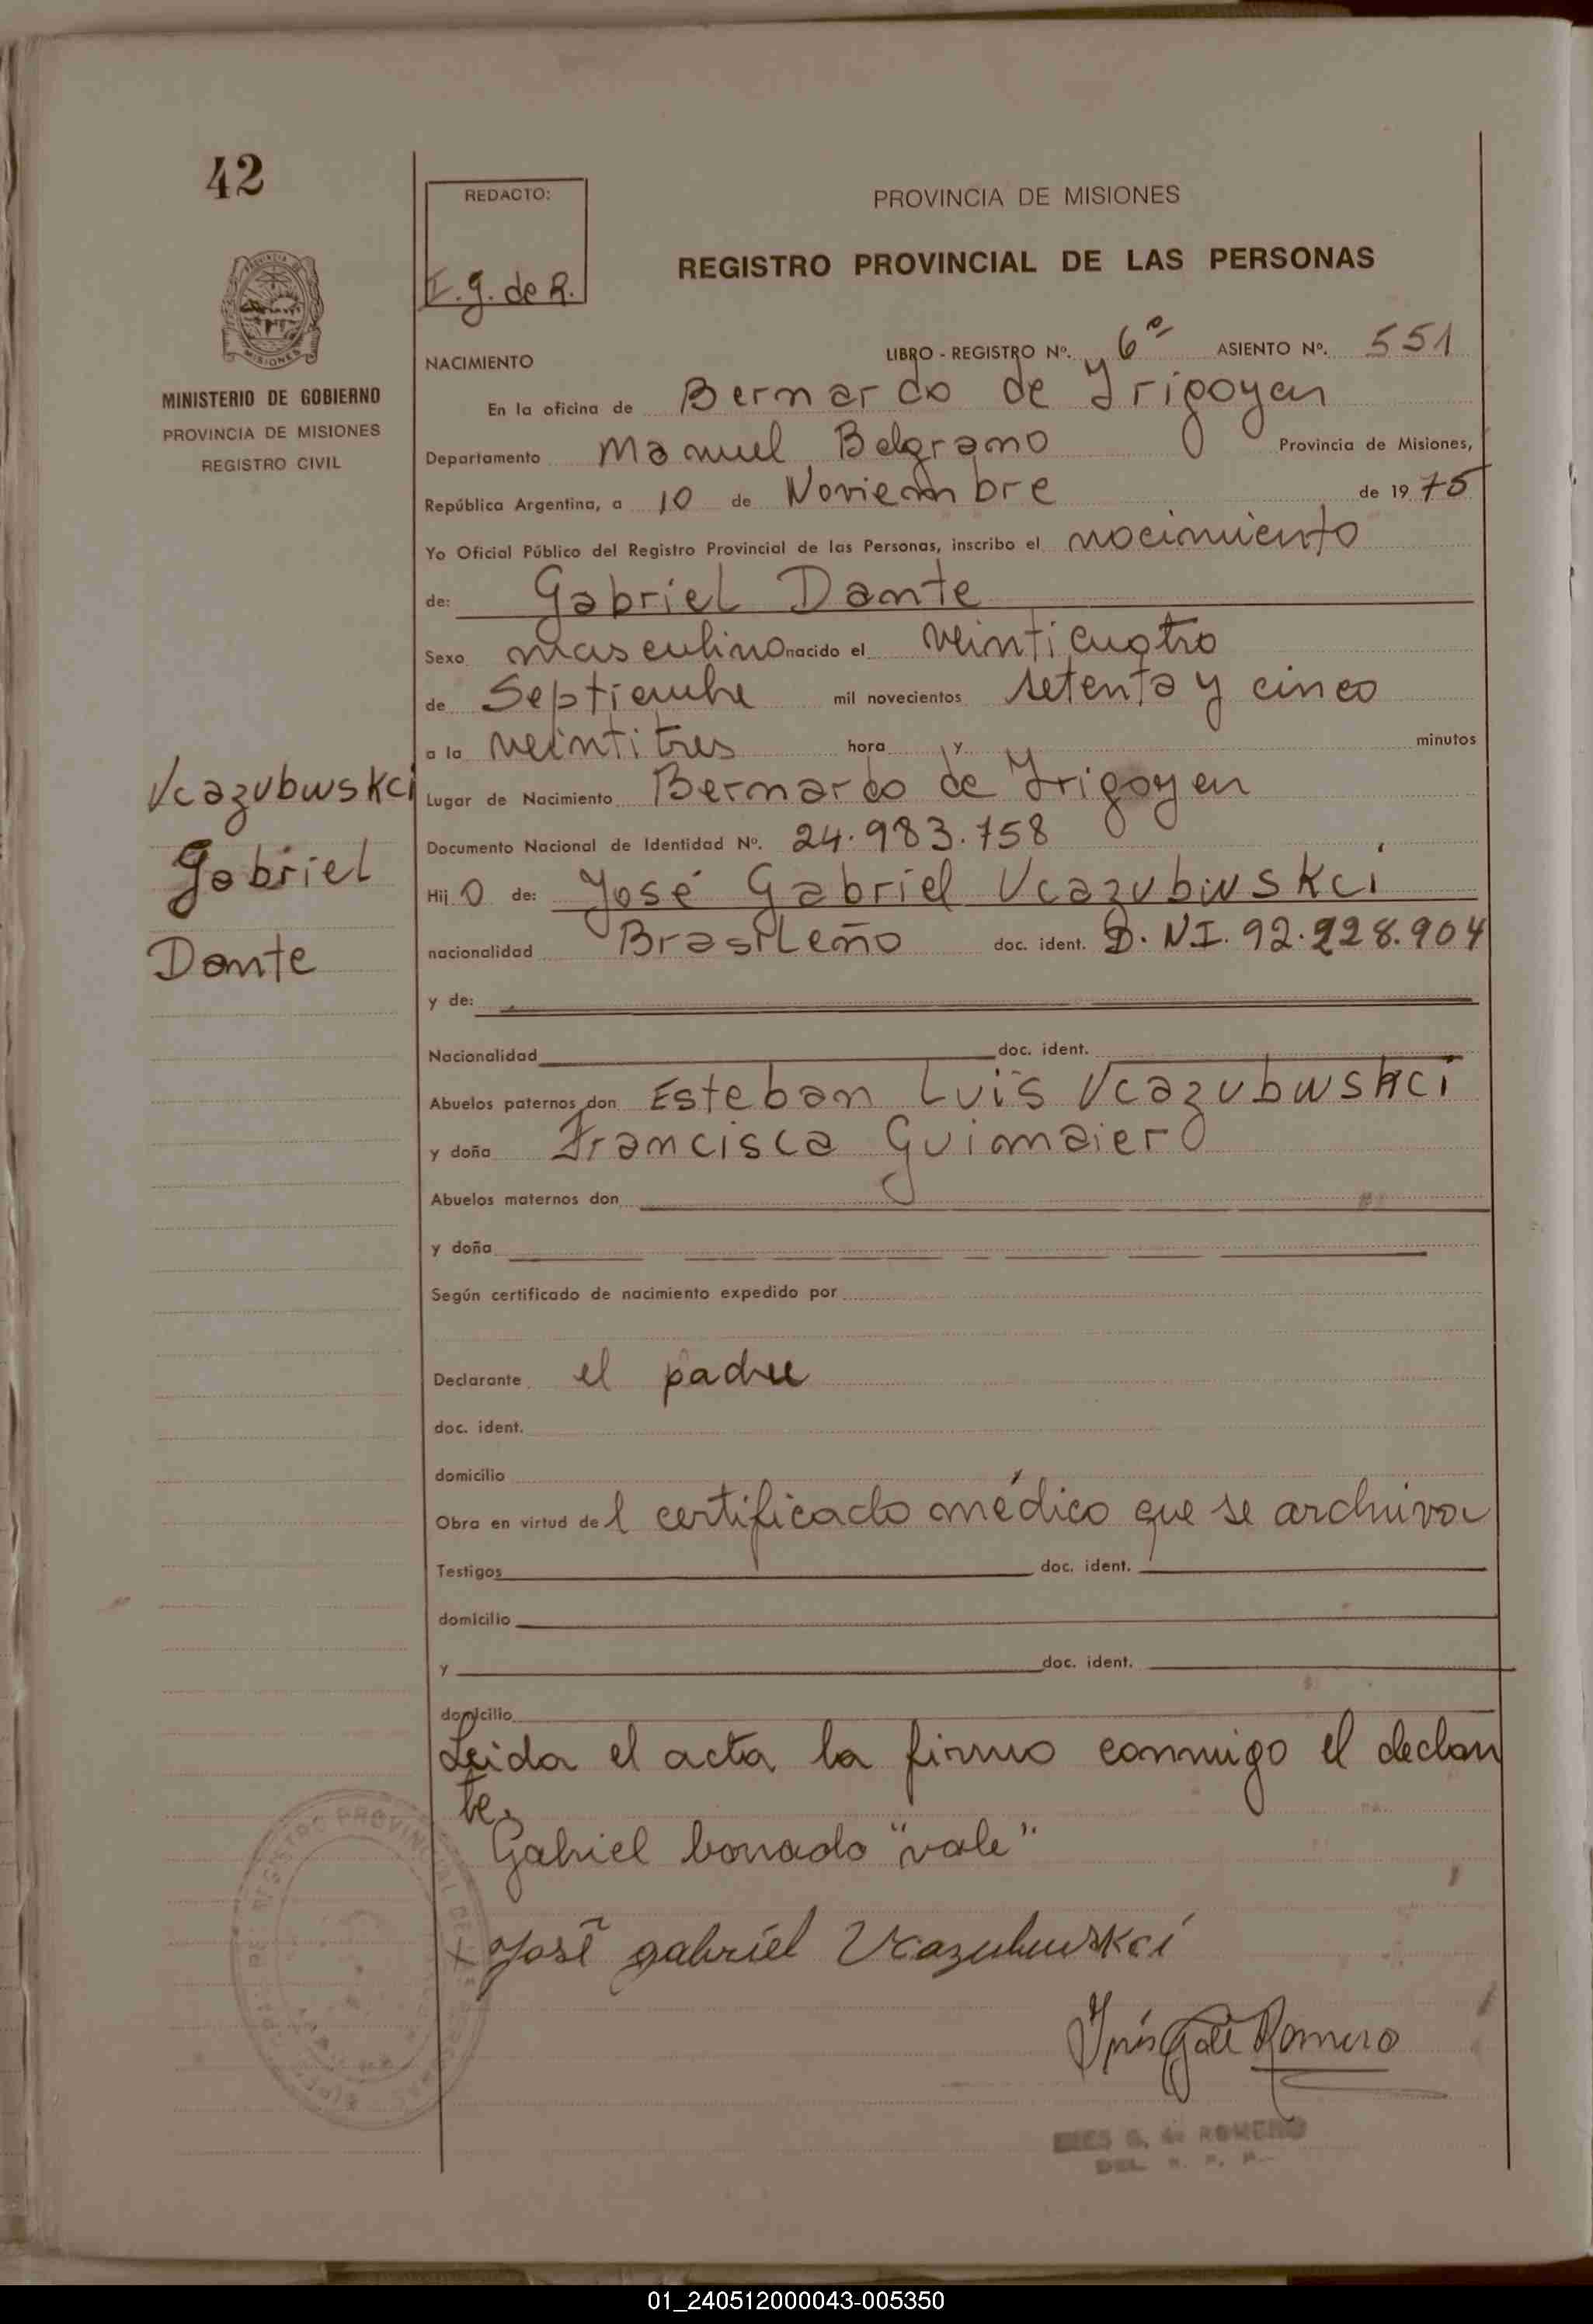 42
REDACTO:
I. g. de R.
PROVINCIA DE MISIONES
REGISTRO PROVINCIAL DE LAS PERSONAS
MISIONES
MINISTERIO DE GOBIERNO
PROVINCIA DE MISIONES
REGISTRO CIVIL
NACIMIENTO LIBRO - REGISTRO Nº. 6º ASIENTO Nº. 551
En la oficina de Bernardo de Yrigoyen
Departamento Manuel Belgrano Provincia de Misiones,
República Argentina, a 10 de Noviembre de 19 75
Yo Oficial Público del Registro Provincial de las Personas, inscribo el nacimiento
de: Gabriel Dante
Sexo masculino nacido el veinticuatro
de Septiembre mil novecientos setenta y cinco
a la veintitres hora y minutos
Vcazubwskci
Gabriel
Dante
Lugar de Nacimiento Bernardo de Yrigoyen
Documento Nacional de Identidad Nº. 24.983.758
Hij o de: José Gabriel Vcazubwskci
nacionalidad Brasileño doc. ident. D.NI. 92.228.904
y de:
Nacionalidad doc. ident.
Abuelos paternos don Esteban Luis Vcazubwskci
y doña Francisca Guimaiero
Abuelos maternos don
y doña
Según certificado de nacimiento expedido por
Declarante el padre
doc. ident.
domicilio
Obra en virtud de l certificado médico que se archiva
Testigos doc. ident.
domicilio
y doc. ident.
domicilio
Leida el acta la firmo conmigo el declan
te.
Gabriel borrado "vale"
José gabriel Vcazubwskci
Inés G de Romero
INES G. de ROMERO
REGISTRO PROVINCIAL DE LAS PERSONAS
01_240512000043-005350